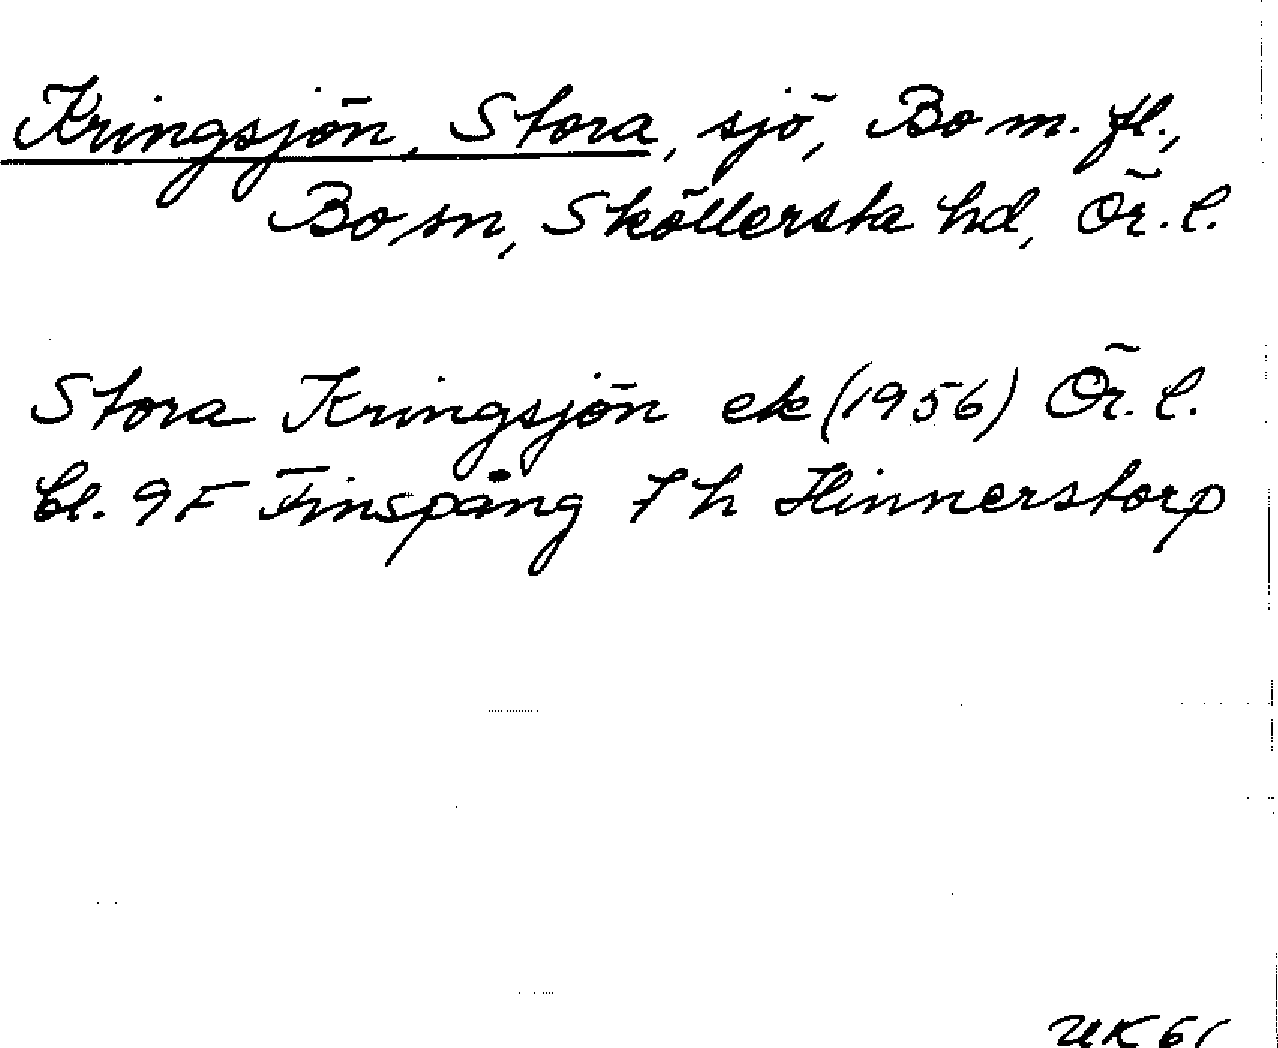 Kringsjön, Stora, sjö, Bo m. fl.,
Bo sn, Sköllersta hd, Ör. l.
Stora Kringsjön ek (1956) Ör. l.
bl. 9F Finspång 7h Hinnerstorp
UK 61